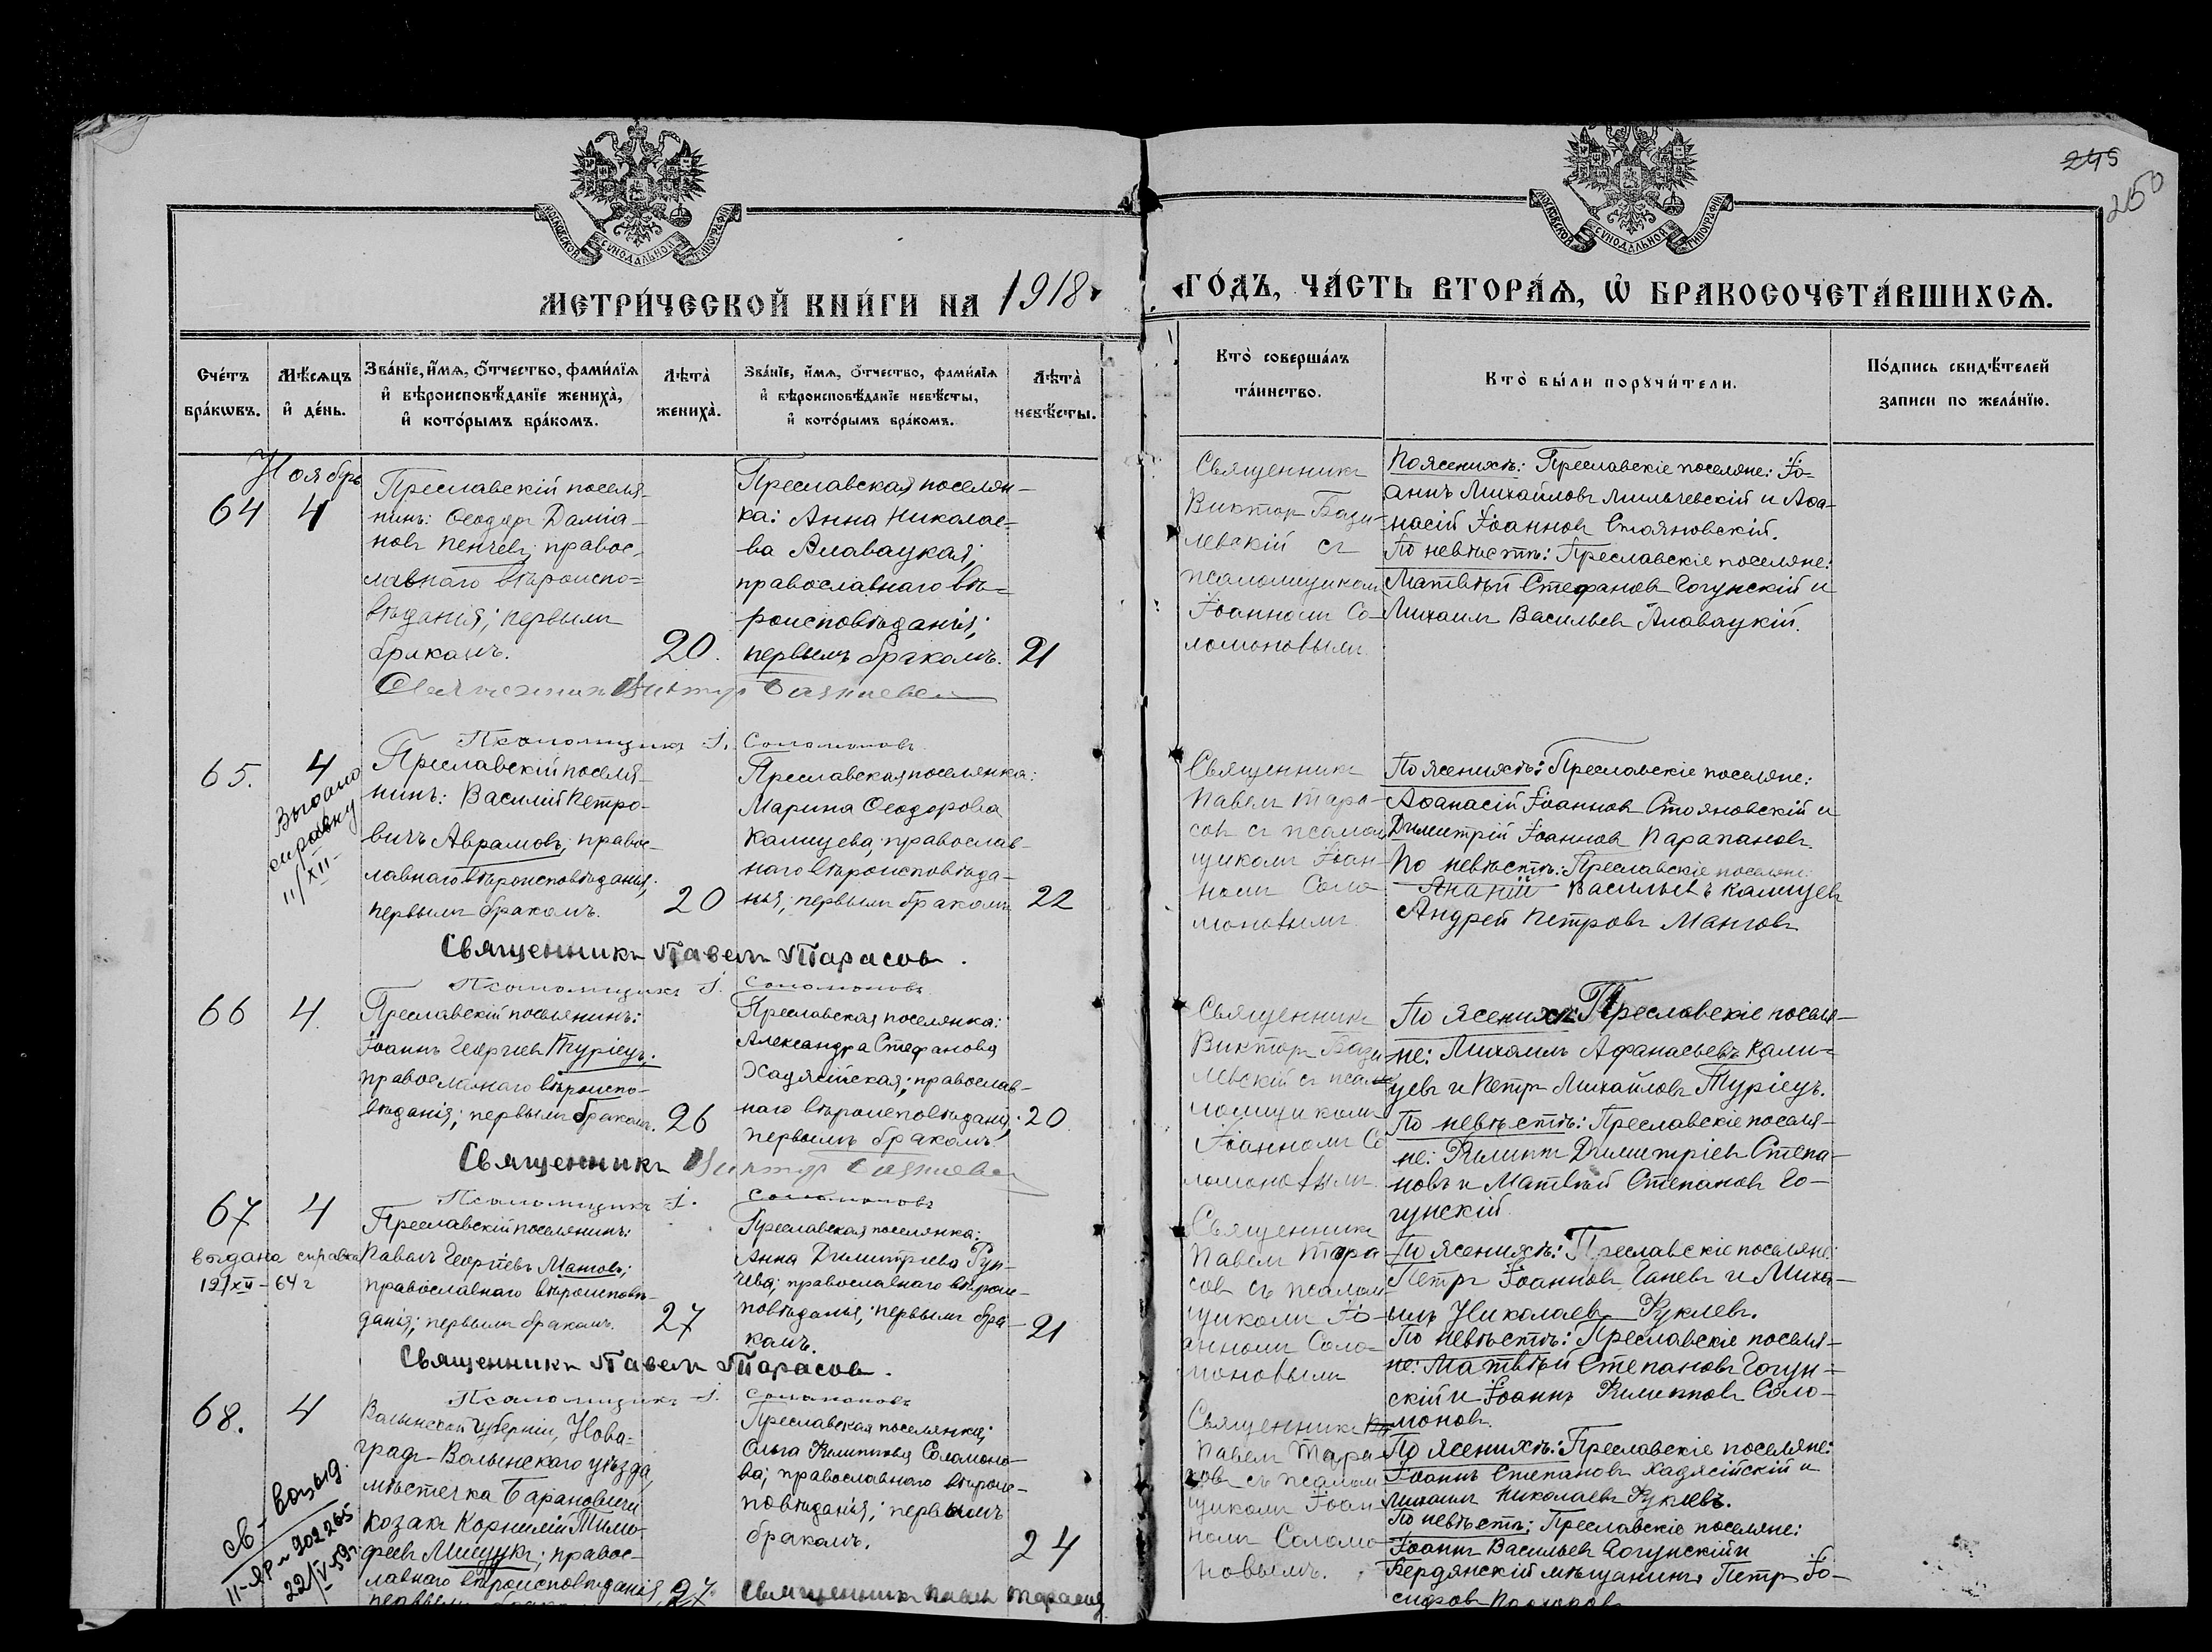 245
250
МОСКОВСКОЙ СѴНОДАЛЬНОЙ ТИПОГРАФІИ
МОСКОВСКОЙ СѴНОДАЛЬНОЙ ТИПОГРАФІИ
МЕТРИ́ЧЕСКОЙ КНИ́ГИ НА 1918
ГО́ДЪ, ЧА́СТЬ ВТОРА́Ѧ, Ѡ҆ БРАКОСОЧЕТА́ВШИХСѦ.
Сче́тъ
бра́кѡвъ.
Мѣ́сѧцъ
и҆ де́нь.
Зва́нїе, и҆́мѧ, ѻ҆́тчество, фами́лїѧ
и҆ вѣроисповѣ́данїе жениха̀,
и҆ кото́рымъ бра́комъ.
Лѣта̀
жениха̀.
Зва́нїе, и҆́мѧ, ѻ҆́тчество, фами́лїѧ
и҆ вѣроисповѣ́данїе невѣ́сты,
и҆ кото́рымъ бра́комъ.
Лѣта̀
невѣ́сты.
Кто̀ соверша́лъ
та́инство.
Кто̀ бы́ли порꙋчи́тели.
По́дпись свидѣ́телей
записи по жела́нїю.
Ноябрь
64
4
Преславскій поселя-
нинъ: Ѳеодоръ Даміа-
новъ Пенчевъ; правос-
лавнаго вѣроиспо-
вѣданія; первымъ
бракомъ.
20.
Преславская поселян-
ка: Анна Николае-
ва Алавацкая;
православнаго вѣ-
роисповѣданія;
первымъ бракомъ.
21
Священникъ Викторъ Базилевск
Псаломщикъ І. Соломоновъ
Священникъ
Викторъ Бази-
левскій съ
псаломщикомъ
Іоанномъ Со-
ломоновымъ
По женихѣ: Преславскіе поселяне: Іо-
аннъ Михайловъ Мильчевскій и Аѳа-
насій Іоанновъ Стояновскій.
По невѣстѣ: Преславскіе поселяне:
Матвѣй Стефановъ Гогунскій и
Михаилъ Васильевъ Алавацкій.
65.
4
Выдано
справку
11/XII-
Преславскій поселя-
нинъ: Василій Петро-
вичъ Аврамовъ; правос-
лавнаго вѣроисповѣданія;
первымъ бракомъ.
20
Преславская поселянка:
Марина Ѳеодорова
Калицева; православ-
наго вѣроисповѣда-
нія; первымъ бракомъ
22
Священникъ Павелъ Тарасовъ.
Псаломщикъ І. Соломоновъ
Священникъ
Павелъ Тара-
совъ съ псалом
щикомъ Іоан-
номъ Соло-
моновымъ.
По женихѣ: Преславскіе поселяне:
Аѳанасій Іоанновъ Стояновскій и
Димитрій Іоанновъ Парапановъ.
По невѣстѣ: Преславскіе поселяне:
Ананій Васильевъ Калицевъ
Андрей Петровъ Манговъ
66
4.
Преславскій поселянинъ:
Іоаннъ Георгіевъ Туріецъ;
православнаго вѣроиспо-
вѣданія; первымъ бракомъ.
26
Преславская поселянка:
Александра Стефанова
Хаджійская; православ-
наго вѣроисповѣданія;
первымъ бракомъ
20
Священникъ Викторъ Базилевск
Псаломщикъ І. Соломоновъ
Священникъ
Викторъ Бази-
левскій съ пса
ломщикомъ
Іоанномъ Со
ломоновымъ
По женихѣ Преславскіе поселя-
не: Михаилъ Афанасьевъ Кали-
цевъ и Петръ Михайловъ Туріецъ.
По невѣстѣ: Преславскіе поселя-
не: Филиппъ Димитріевъ Степа-
новъ и Матвѣй Степановъ Го-
гунскій.
67
4
выдана справка
12/XII-64 г
Преславскій поселянинъ:
Павелъ Георгіевъ Манговъ;
православнаго вѣроисповѣ-
данія; первымъ бракомъ.
27
Преславская поселянка:
Анна Димитріева Рун-
чева; православнаго вѣроис-
повѣданія; первымъ бра-
комъ.
21
Священникъ Павелъ Тарасовъ.
Псаломщикъ І. Соломоновъ
Священникъ
Павелъ Тара
совъ съ псалом
щикомъ Іо-
анномъ Соло-
моновымъ
По женихѣ: Преславскіе поселяне:
Петръ Іоанновъ Ганевъ и Миха-
илъ Николаевъ Руклевъ.
По невѣстѣ: Преславскіе поселя-
не: Матвѣй Степановъ Гогун-
скій и Іоаннъ Филипповъ Соло-
моновъ.
68.
4
св-во выд.
II-ЯР № 202265
22/V-59г.
Волынской губерніи, Нова-
градъ-Волынскаго уѣзда,
мѣстечка Барановичи
козакъ Корнилій Тимо-
феевъ Мищукъ; правос-
лавнаго вѣроисповѣданія,
первымъ
27.
Преславская поселянка;
Ольга Филиппова Соломоно-
ва; православнаго вѣроис-
повѣданія; первымъ
бракомъ.
24
Священникъ Павелъ Тарасовъ
Священникъ
Павелъ Тара-
совъ съ псалом
щикомъ Іоан-
номъ Соломо-
новымъ.
По женихѣ: Преславскіе поселяне:
Іоаннъ Степановъ Хаджійскій и
Михаилъ Николаевъ Руклевъ.
По невѣстѣ: Преславскіе поселяне:
Іоаннъ Васильевъ Гогунскій и
Бердянскій мѣщанинъ Петръ Іо-
сифовъ